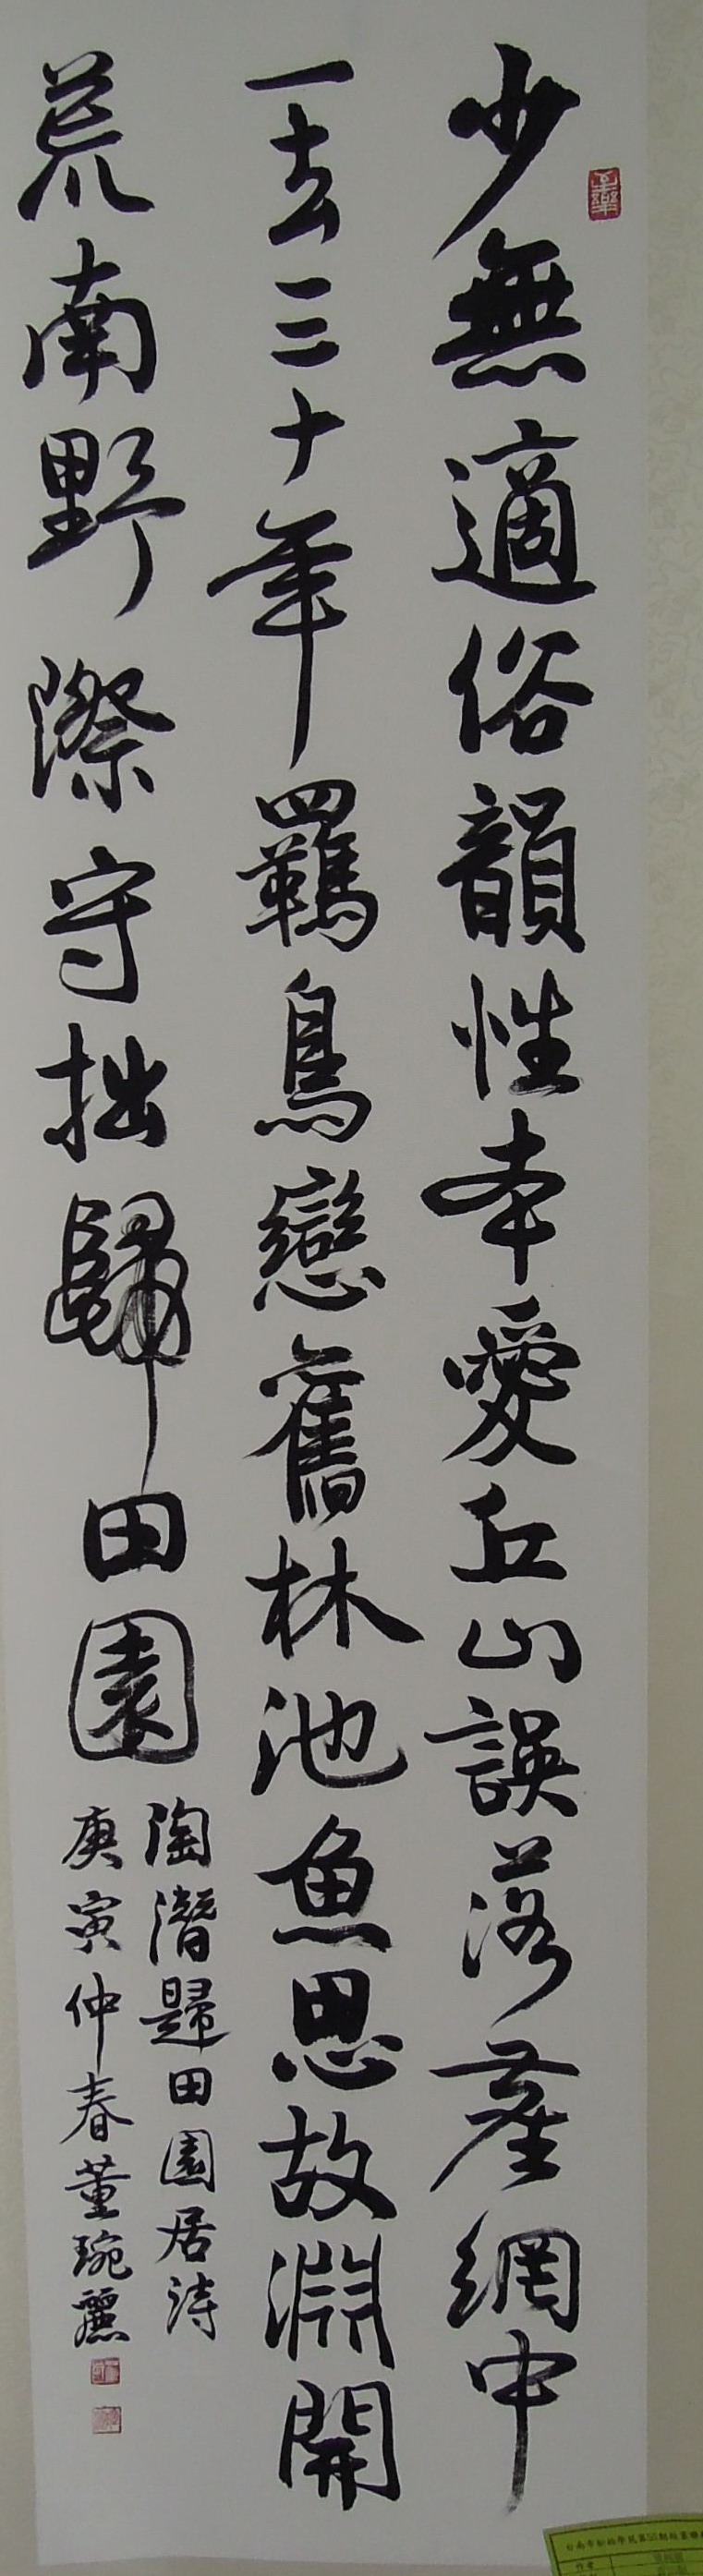 少無適俗韻性本愛丘山誤落塵網中
一去三十年羈鳥戀舊林池魚思故淵開
荒南野際守拙歸田園
陶潛歸田園居詩
庚寅仲春董琬麗